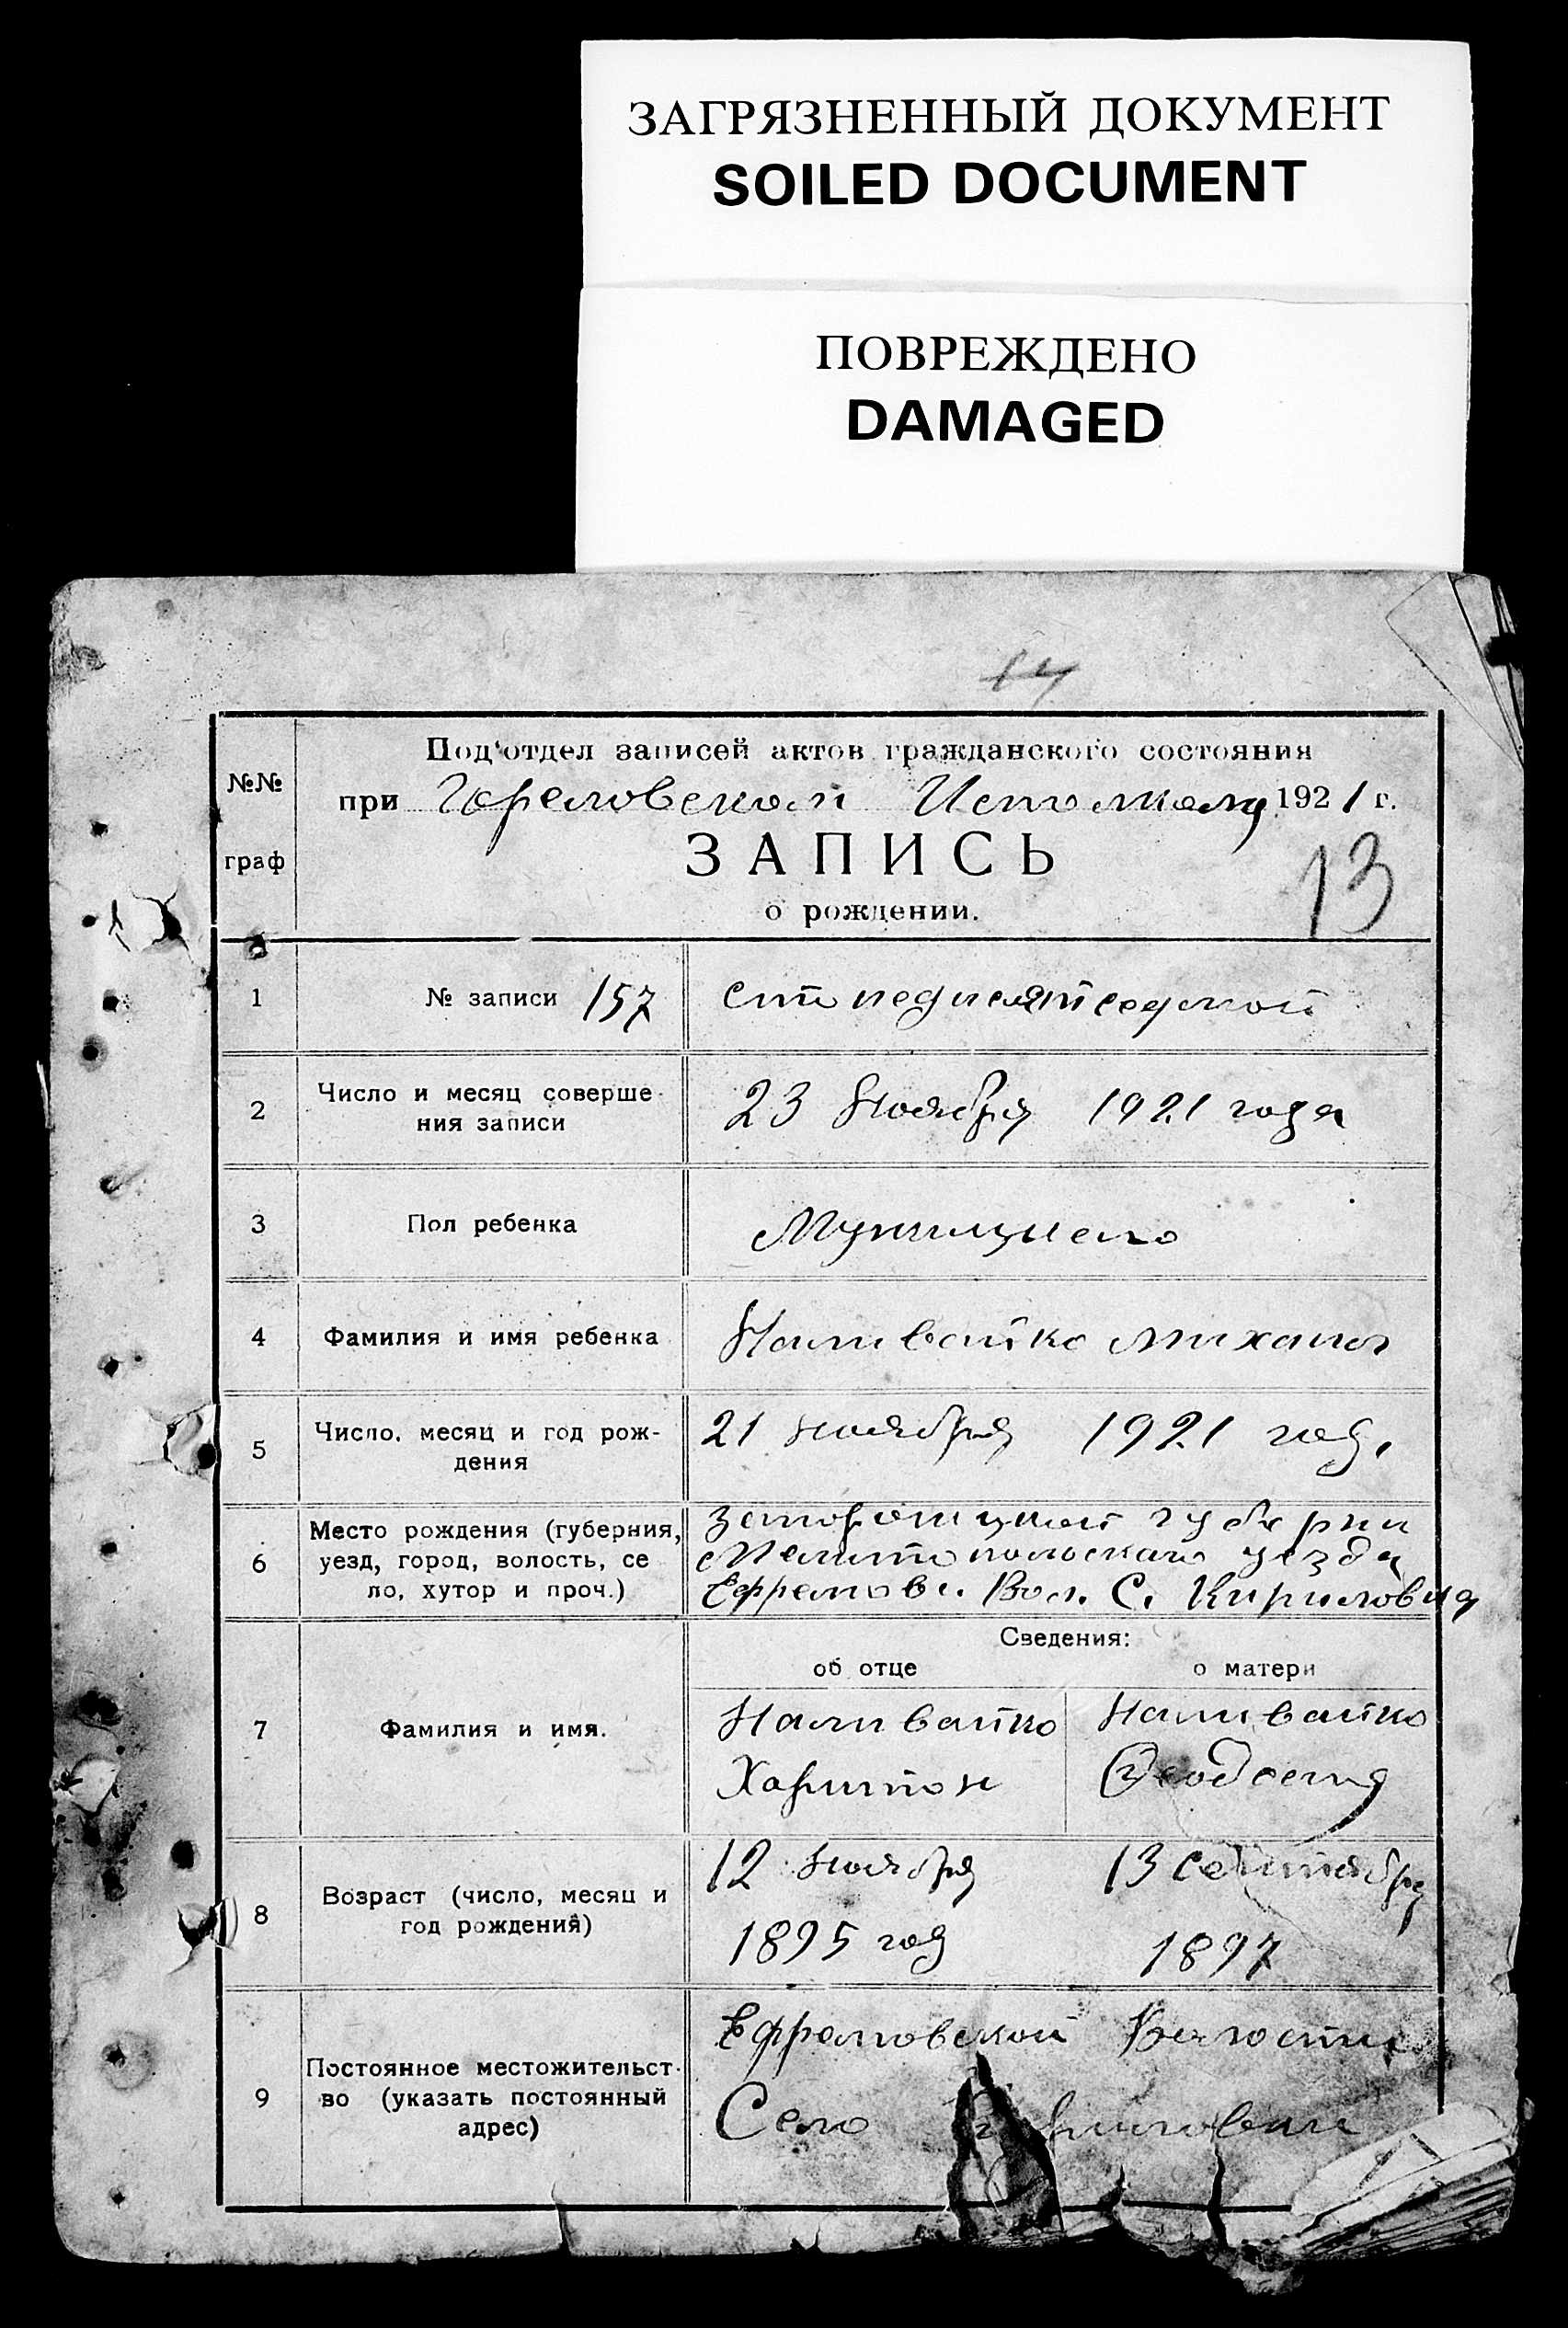 ЗАГРЯЗНЕННЫЙ ДОКУМЕНТ
SOILED DOCUMENT
ПОВРЕЖДЕНО
DAMAGED
14
Под'отдел записей актов гражданского состояния
№№ граф
при Исполкому 1921 г.
ЗАПИСЬ
13
о рождении.
1 № записи 157 сто педисят седмой
2 Число и месяц соверше
ния записи
23 Ноября 1921 года
3 Пол ребенка
4 Фамилия и имя ребенка Наливайко Михаил
5 Число, месяц и год рож-
дения
21 ноября 1921 год.
6 Место рождения (губерния,
уезд, город, волость, се
ло, хутор и проч.)
губерни
Мелитопольскаго уезда
Ефремовс. Вол. С. Кириловка
Сведения:
об отце о матери
7 Фамилия и имя.
Наливайко Наливайко
Харитон Феодосия
8 Возраст (число, месяц и
год рождения)
12 Ноября 13 сентября
1895 год 1897
9 Постоянное местожительст-
во (указать постоянный
адрес)
Ефремовской Волости
Село